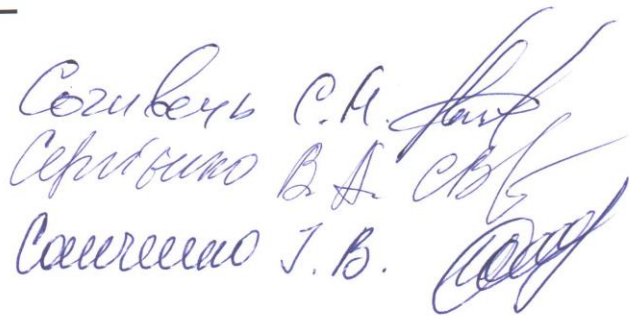 Согивець С.М.
Сергієнко В.А.
Санченко І.В.